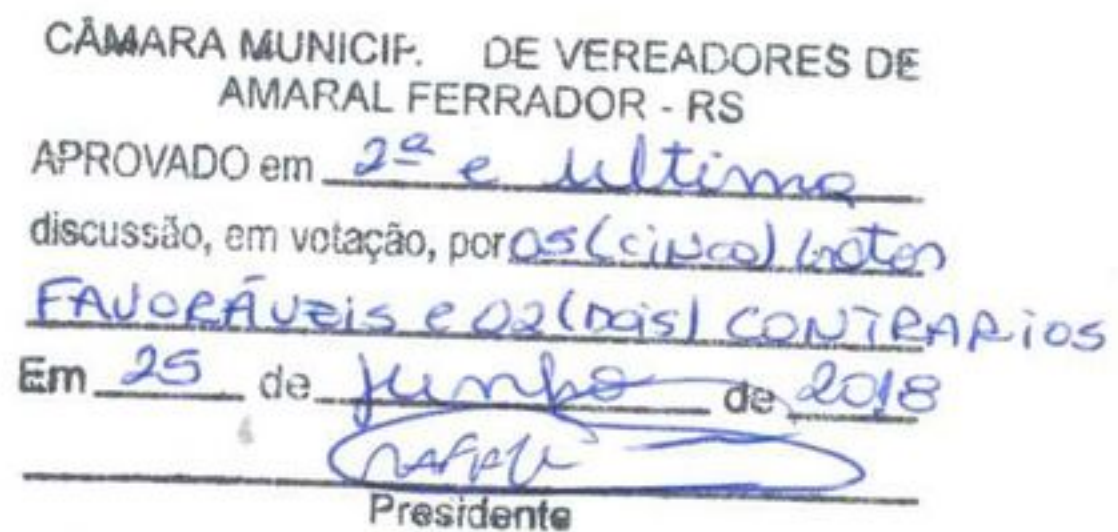 CÂMARA MUNICIP. DE VEREADORES DE
AMARAL FERRADOR - RS
APROVADO em 2ª e ultima
discussão, em votação, por 05 (cinco) votos
FAVORÁVEIS e 02 (DOIS) CONTRARIOS
Em 25 de junho de 2018
Presidente